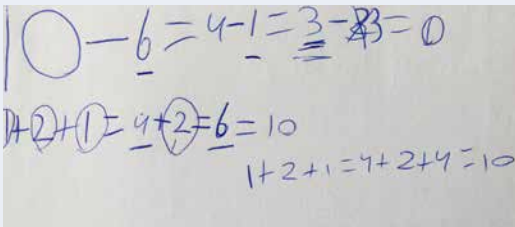 10-6=4-1=3-3=0
1+2+1=4+2=6=10
1+2+1=4+2+4=10